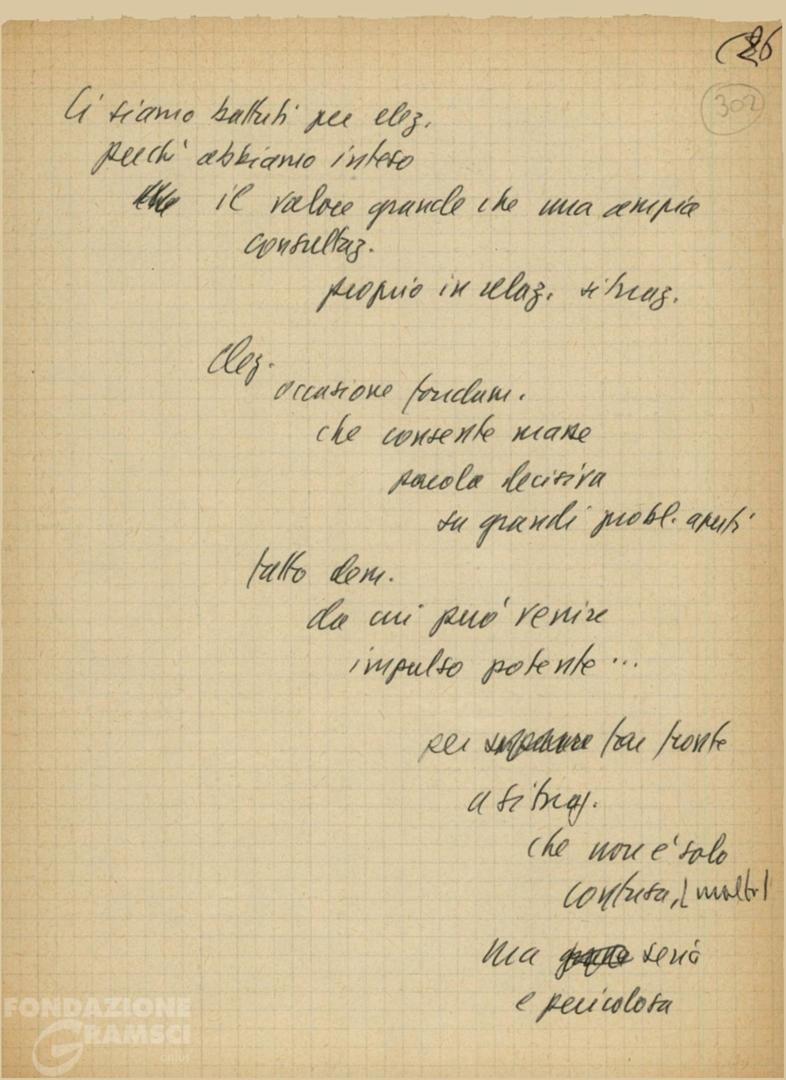 (26
302
Ci siamo battuti per elez.
perché abbiamo inteso
il valore grande che una ampia
consultaz.
proprio in relaz. situaz.
Elez.
occasione fondam.
che consente masse
parola decisiva
su grandi probl. aperti
fatto dem.
da cui può venire
impulso potente...
per superare far fronte
a situaz.
che non è solo
confusa,
ma seria
e pericolosa
FONDAZIONE
GRAMSCI
onlus